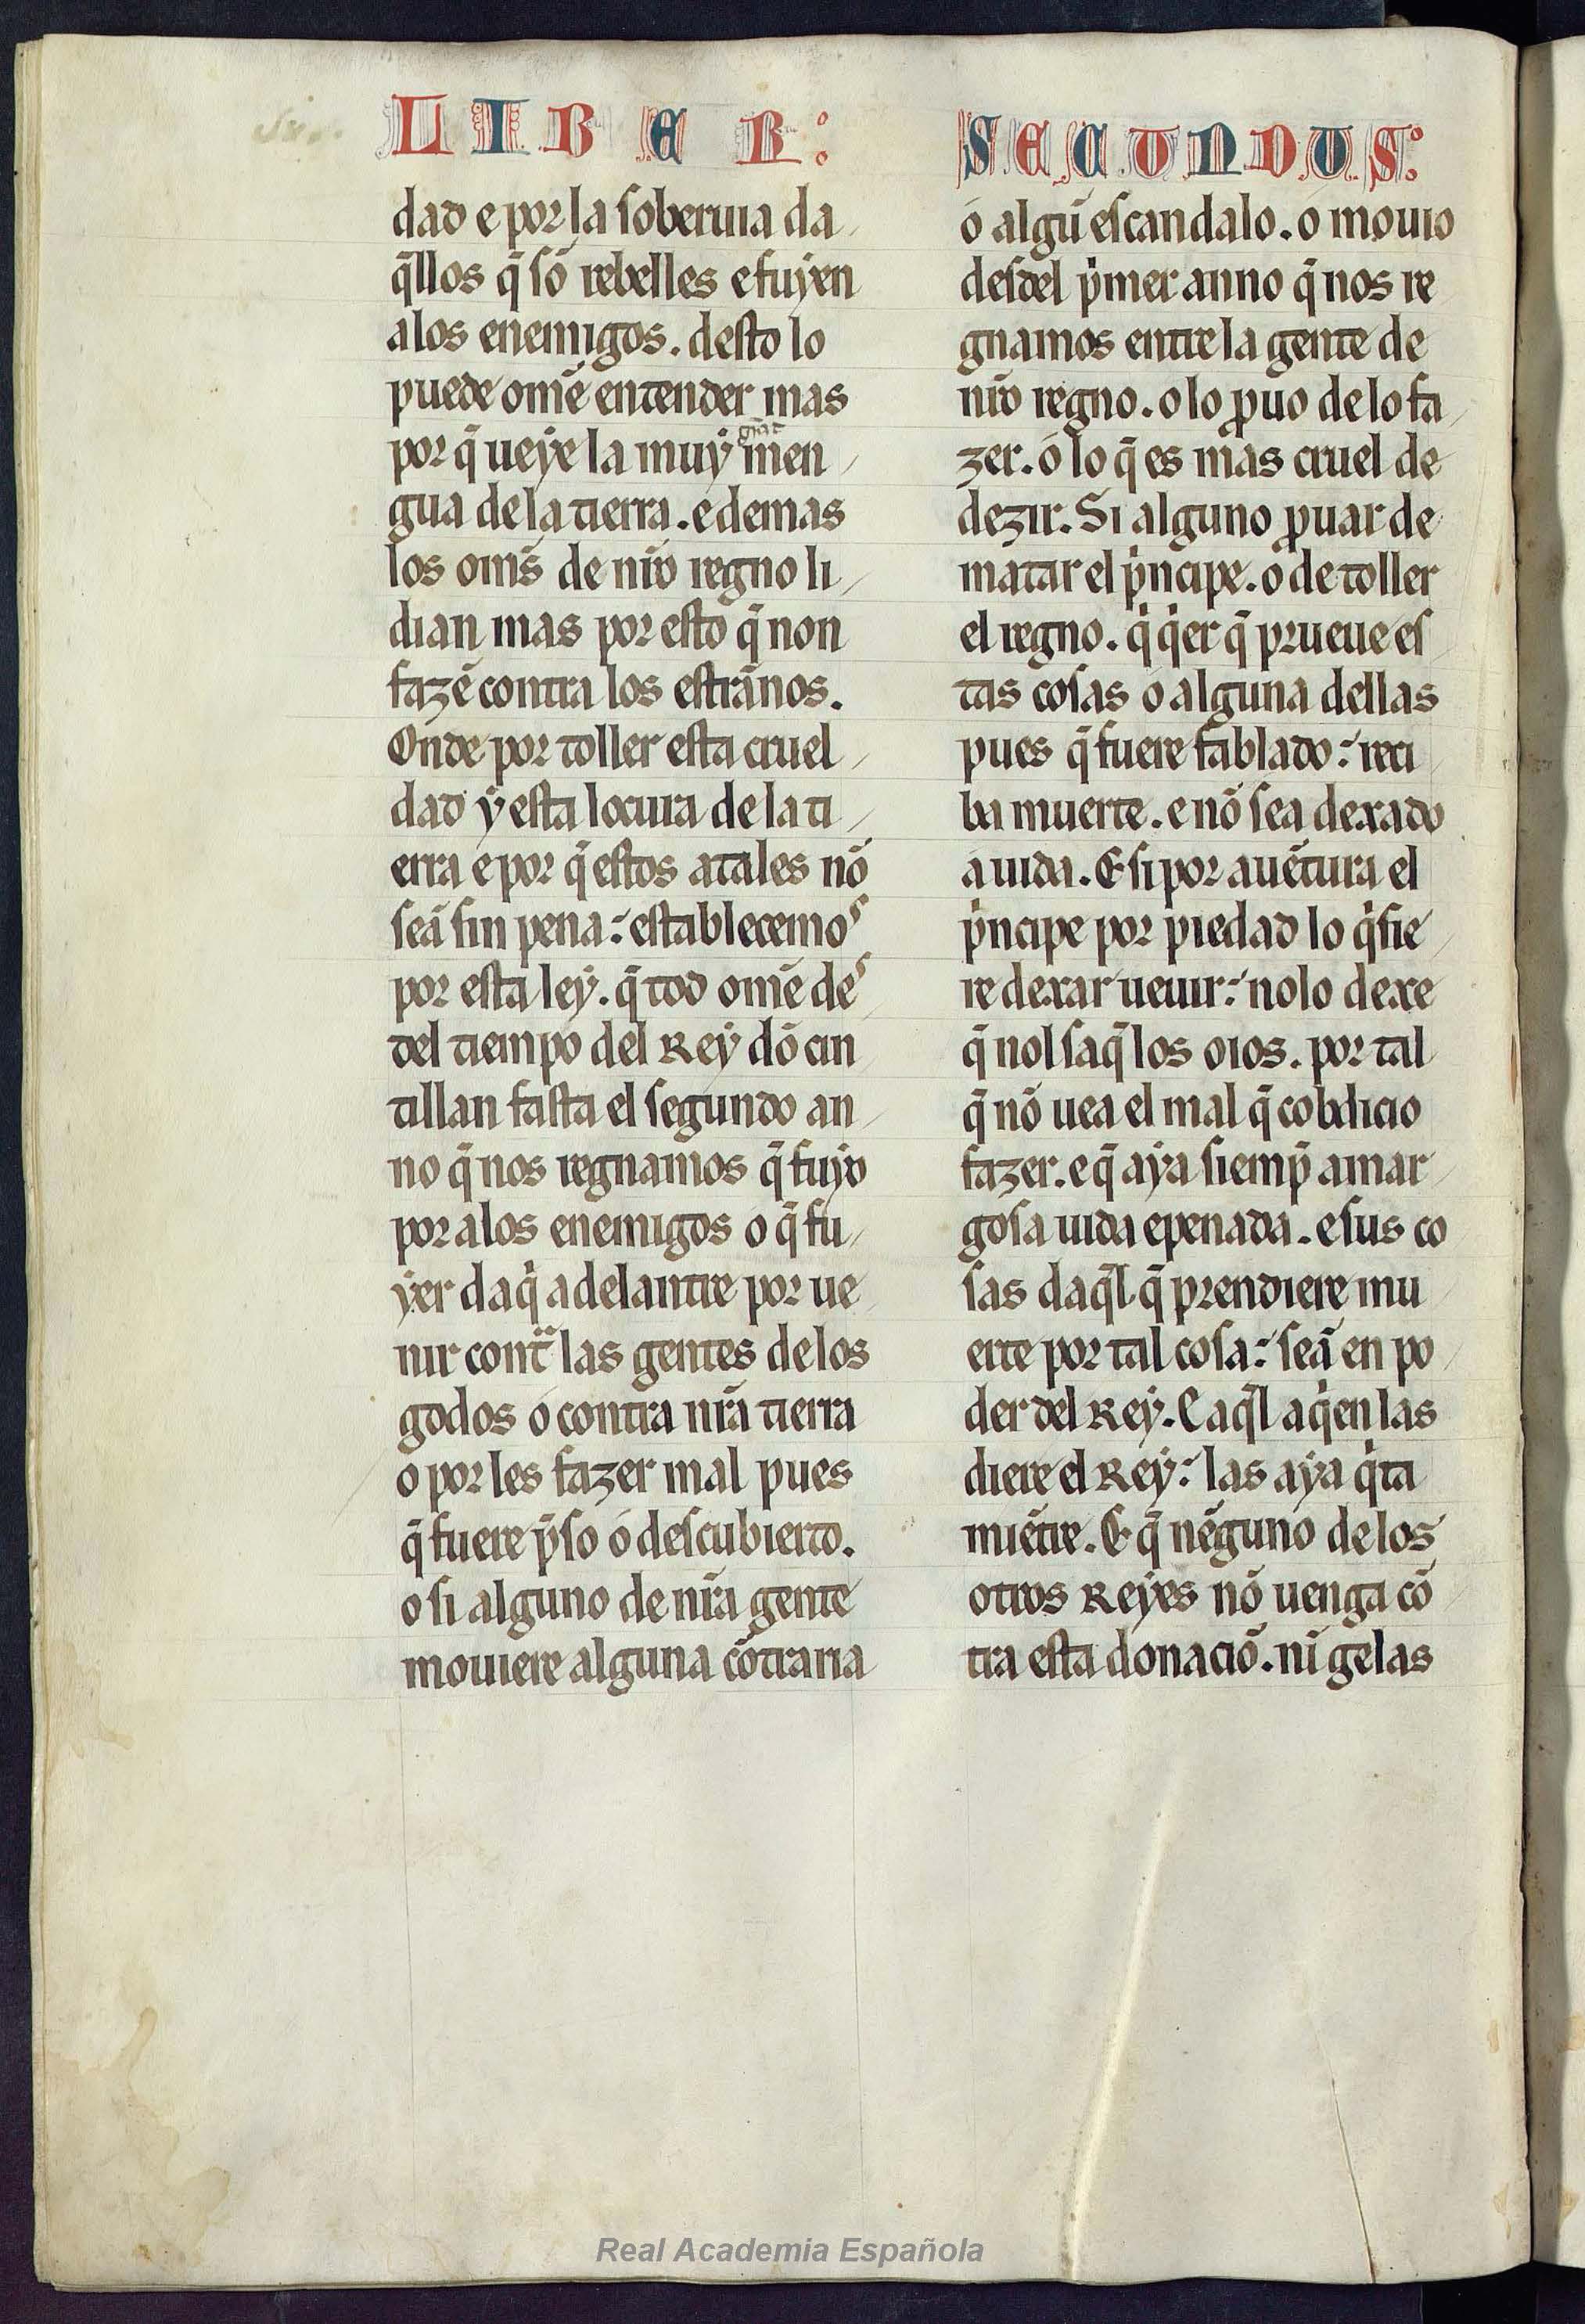 LIBER:
dad e por la soberuia da
q̄llos q̄ sō rebelles e fuyen
alos enemigos. desto lo
puede om̄e entender mas
por q̄ ueye la muy grāt men
gua dela tierra. e demas
los om̄s de nr̄o regno li
dian mas por esto q̄ non
fazē contra los estrānos.
Onde por toller esta cruel
dad y esta locura dela ti
erra e por q̄ estos atales nō
seā sin pena: establecemos
por esta ley. q̄ tod om̄e des
del tiempo del Rey dō cin
tillan fasta el segundo an
no q̄ nos regnamos q̄ fuyo
por alos enemigos o q̄ fu
yer daq̇ adelantre por ue
nir contͣ las gentes delos
godos o contra nr̄a tierra
o por les fazer mal pues
q̄ fuere p̄so o descubierto.
o si alguno de nr̄a gente
mouiere alguna cōtraria
SECUNDUS:
o algū escandalo. o mouio
desdel pͥmer anno q̄ nos re
gnamos entre la gente de
nr̄o regno. o lo ꝓuo de lo fa
zer. o lo q̄ es mas cruel de
dezir. Si alguno ꝓuar de
matar el pͥncipe. o de toller
el regno. q̇ q̇er q̄ prueue es
tas cosas o alguna dellas
pues q̄ fuere fablado: reci
ba muerte. e nō sea dexado
a uida. E si por auētura el
pͥncipe por piedad lo q̇sie
re dexar ueuir: nolo dexe
q̄ nol saq̄ los oios. por tal
q̄ nō uea el mal q̄ cobdicio
fazer. e q̄ aya siemp̄ amar
gosa uida e penada. e sus co
sas daq̄l q̄ prendiere mu
erte por tal cosa: seā en po
der del Rey. E aq̄l a q̇en las
diere el Rey: las aya q̇ta
miētre. E q̄ nēguno delos
otros Reyes nō uenga cō
tra esta donaciō. nī gelas
Real Academia Española